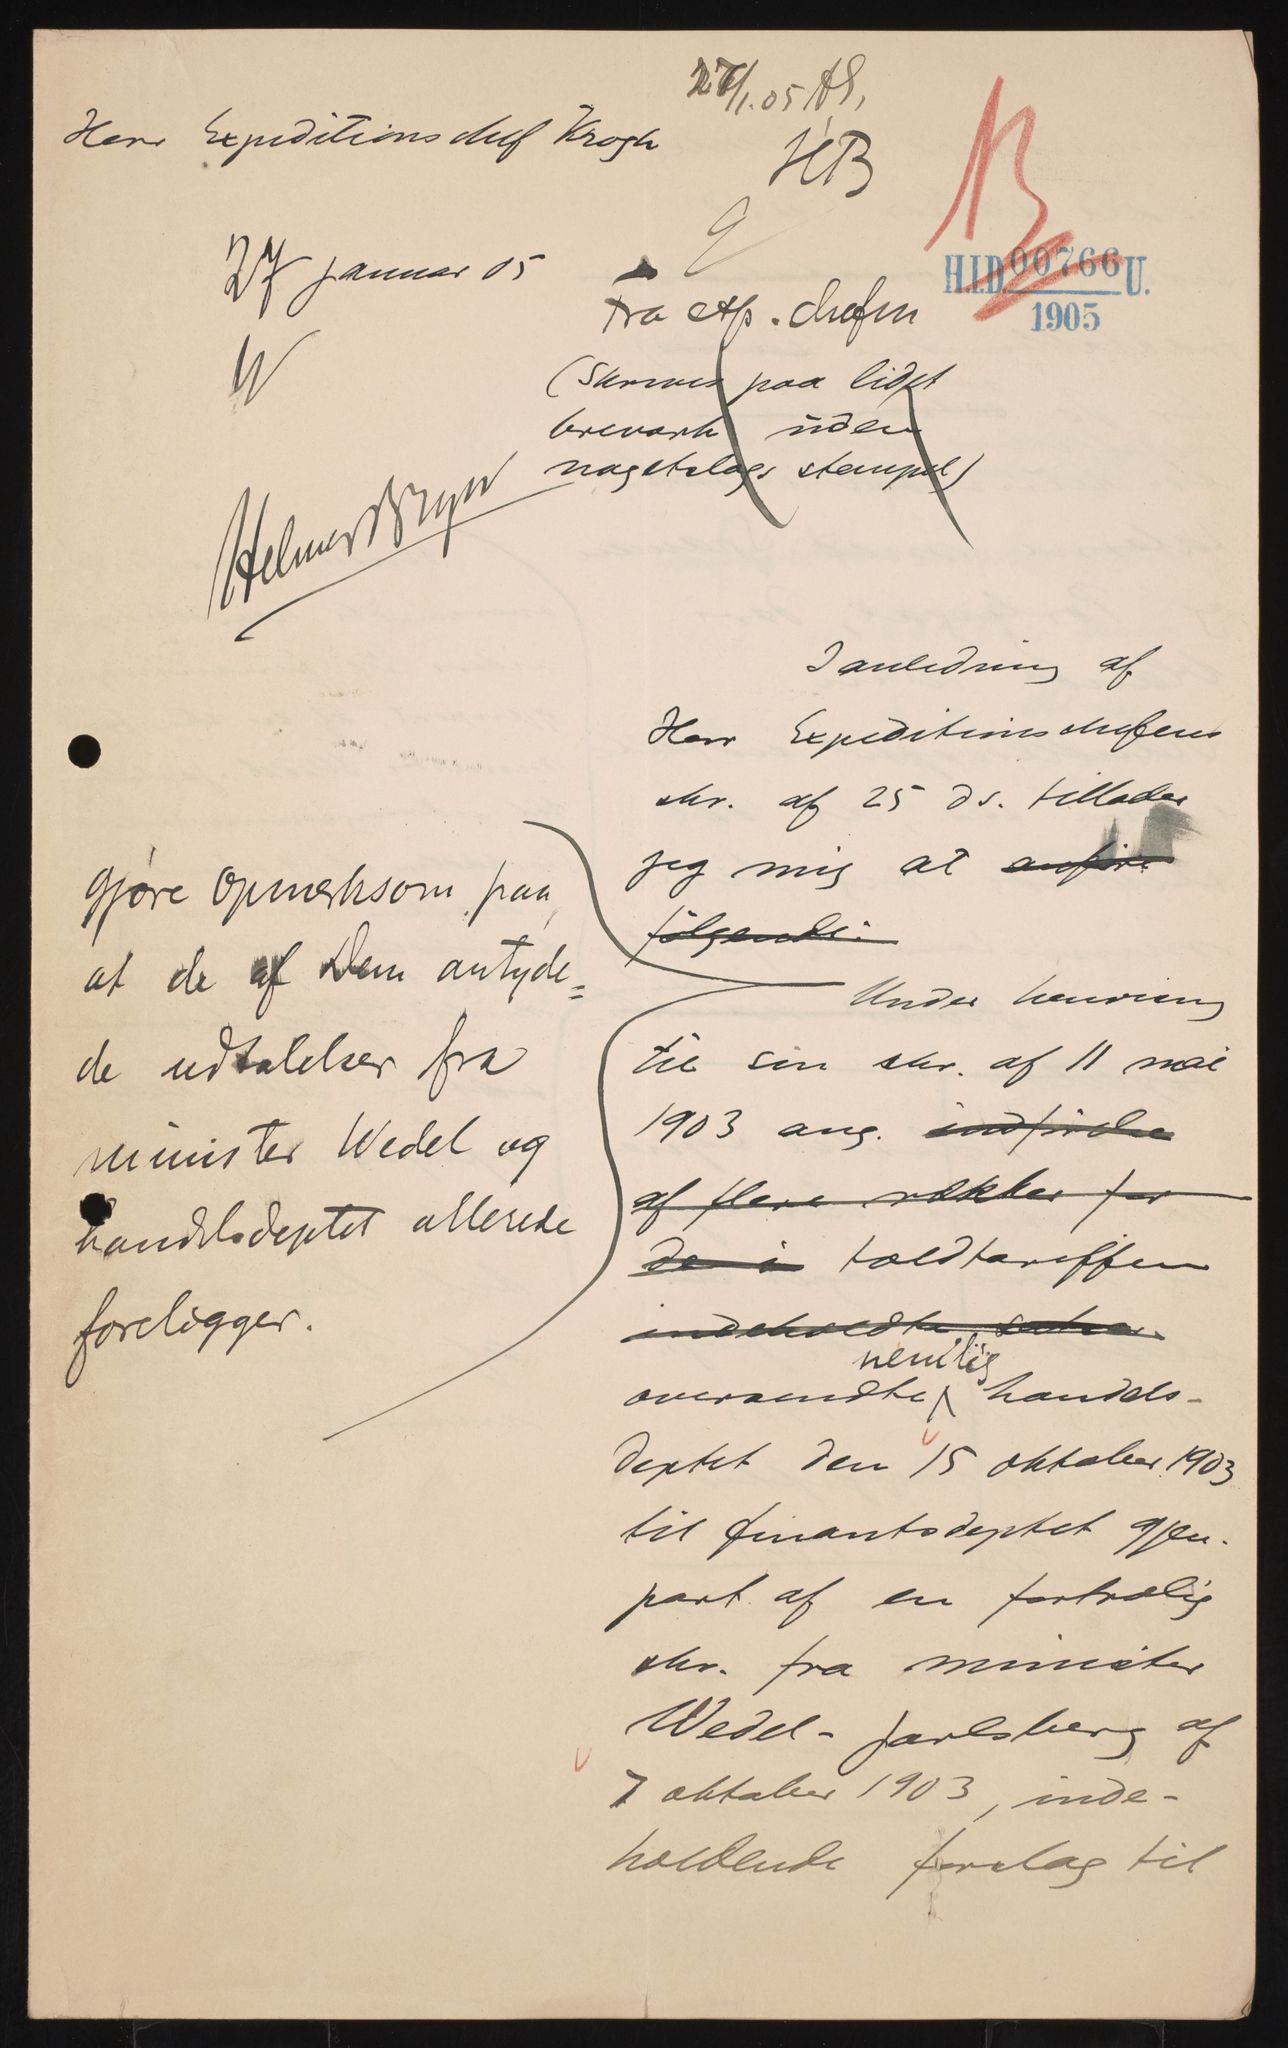 27/1.05 AG,
Herr Expeditionschef Krogh
HB
B
H.I.D. 00766 U.
1905
27 januar 05
Fra exp. chefen
(Skrives paa lidet
brevark uden
nogetslags stempel)
Helmer Bryn
I anledning af
Herr Expeditionschefens
skr. af 25 ds. tillader
jeg mig at anføre
følgende:
gjøre opmerksom paa,
at de af Dem antyde=
de udtalelser fra
minister Wedel og
handelsdeptet allerede
foreligger.
Under henvisning
til sin skr. af 11 mai
1903 ang. indførelse
af flere rækker for
de i toldtariffen
indeholdte satser
nemlig
oversendte handels-
deptet den 15 oktober 1903
til finantsdeptet gjen-
part af en fortrolig
skr. fra minister
Wedel-Jarlsberg af
7 oktober 1903, inde-
holdende forslag til